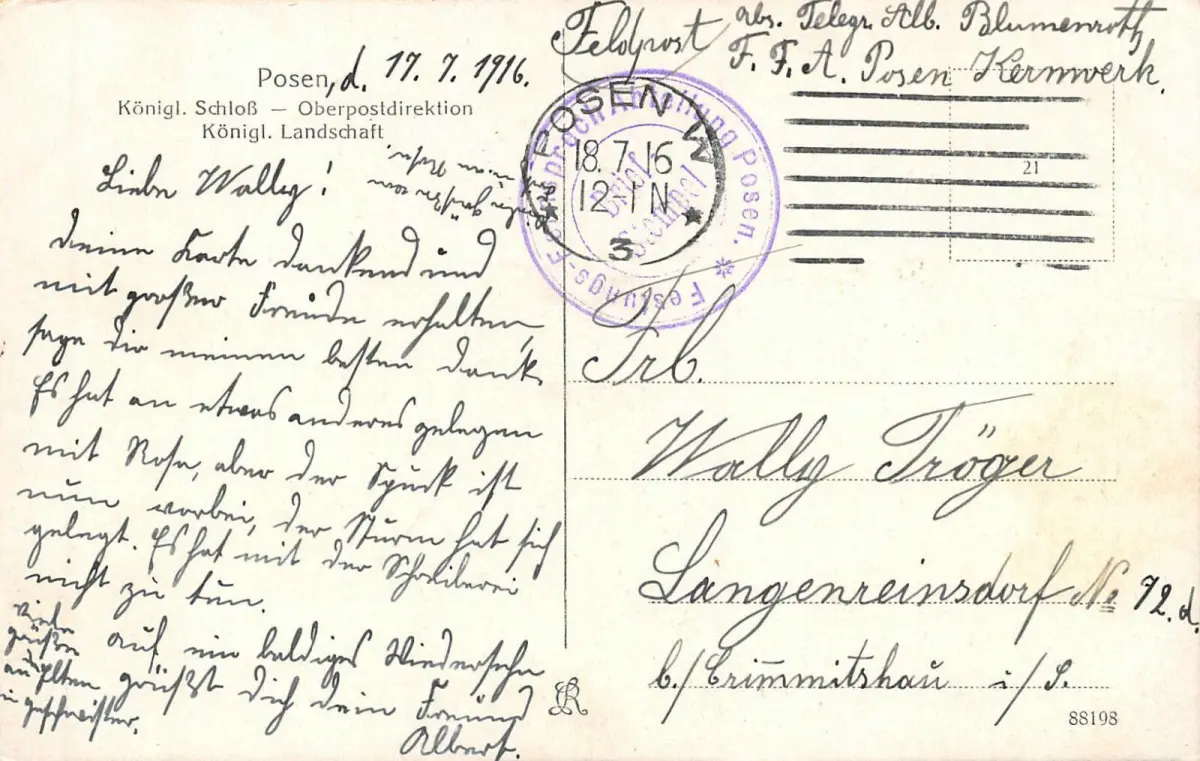 Posen, d. 17. 7. 1916.
Königl. Schloß — Oberpostdirektion
Königl. Landschaft
Liebe Wally!
Deine Karte dankend und
mit großer Freude erhalten,
sage dir meinen besten Dank.
Es hat an etwas anderes gelegen
mit Rosa, aber der Spuck ist
nun vorbei, der Sturm hat sich
gelegt. Es hat mit der Schreiberei
nicht zu tun.
Auf ein baldiges Wiedersehn
grüßt dich dein Freund
Albert.
Viele
Grüße
an d.
Eltern
u. Geschwister.
Feldpost
Abs. Telegr. Alb. Blumenroth,
F. F. A. Posen Kernwerk.
POSEN W
18.7.16
12-1 N
3
Festungs-Fernsprech Abteilung Posen.
Brief
Stempel
21
Frl.
Wally Tröger
Langenreinsdorf № 72.d.
b./Crimmitshau i/S.
88198